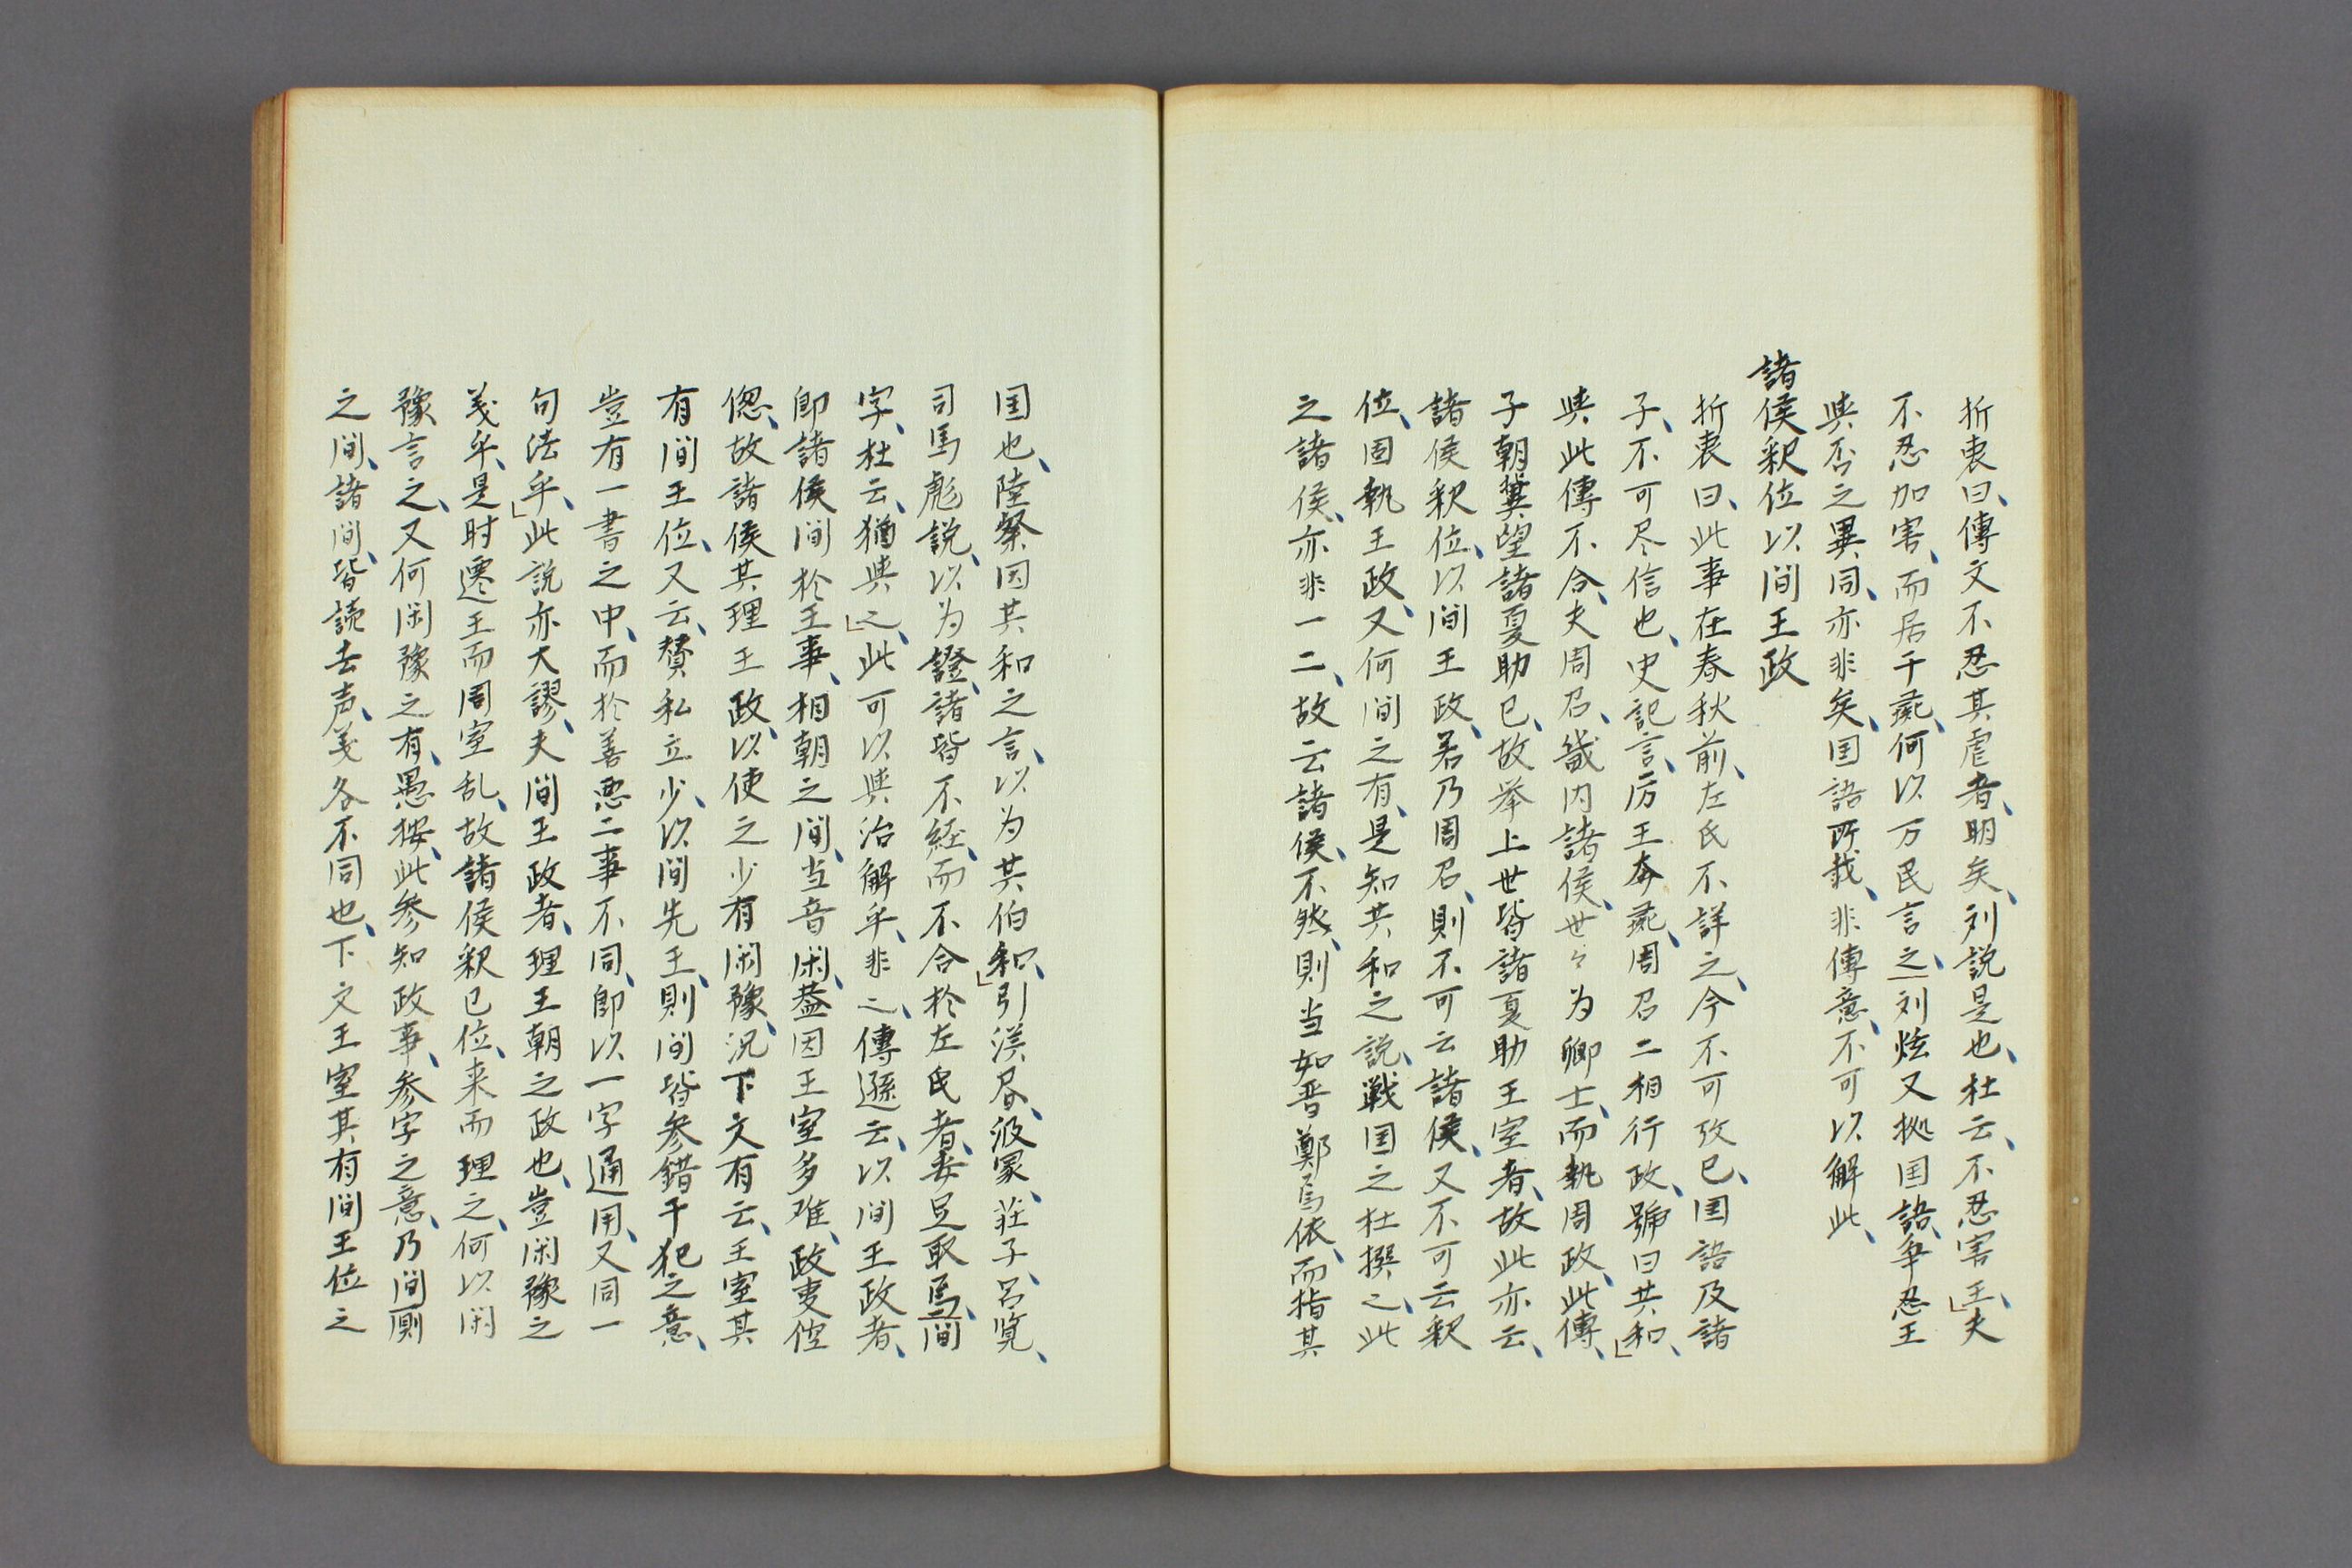 折衷曰、傳文不忍其虐者、明矣、刘説是也、杜云、不忍害王、夫
不忍加害、而居于彘、何以万民言之、刘炫又拠国語、争忍王
與否之異同、亦非矣、国語所載、非傳意、不可以解此、
諸侯釈位以间王政
折衷曰、此事在春秋前、左氏不詳之、今不可攷已、国語及諸
子、不可尽信也、史記言、厉王奔彘、周召二相行政、號曰共和、
與此傳不合、夫周召、畿内諸侯、世々为卿士、而執周政、此傳、
子朝冀望諸夏助已、故举上世皆諸夏助王室者、故此亦云、
諸侯釈位、以间王政、若乃周召、則不可云諸侯、又不可云釈
位、固執王政、又何间之有、是知共和之説、戦国之杜撰之、此
之諸侯、亦非一二、故云諸侯、不然、則当如晋鄭焉依、而指其
国也、陸粲因其和之言、以为共伯和、引渓居、汲冢、荘子、呂覧、
司馬彪説、以为證、諸皆不経、而不合於左氏者、委足取焉、间
字、杜云、猶與之、此可以與治解乎、非之、傳遜云、以间王政者、
即諸侯间於王事、相朝之间、当音闲、葢因王室多难、政叓倥
偬、故諸侯其理王政、以使之少有闲豫、況下文有云、王室其
有间王位、又云、賛私立少、以间先王、則间皆参錯干犯之意、
豈有一書之中、而於善悪二事不同、即以一字通用、又同一
句法乎、此説亦大謬、夫间王政者、理王朝之政也、豈闲豫之
義乎、是时遷王而周室乱、故諸侯釈已位、来而理之、何以闲
豫言之、又何闲豫之有、愚按、此参知政事、参字之意、乃间厠
之间、諸间、皆読去声、義各不同也、下文王室其有间王位之